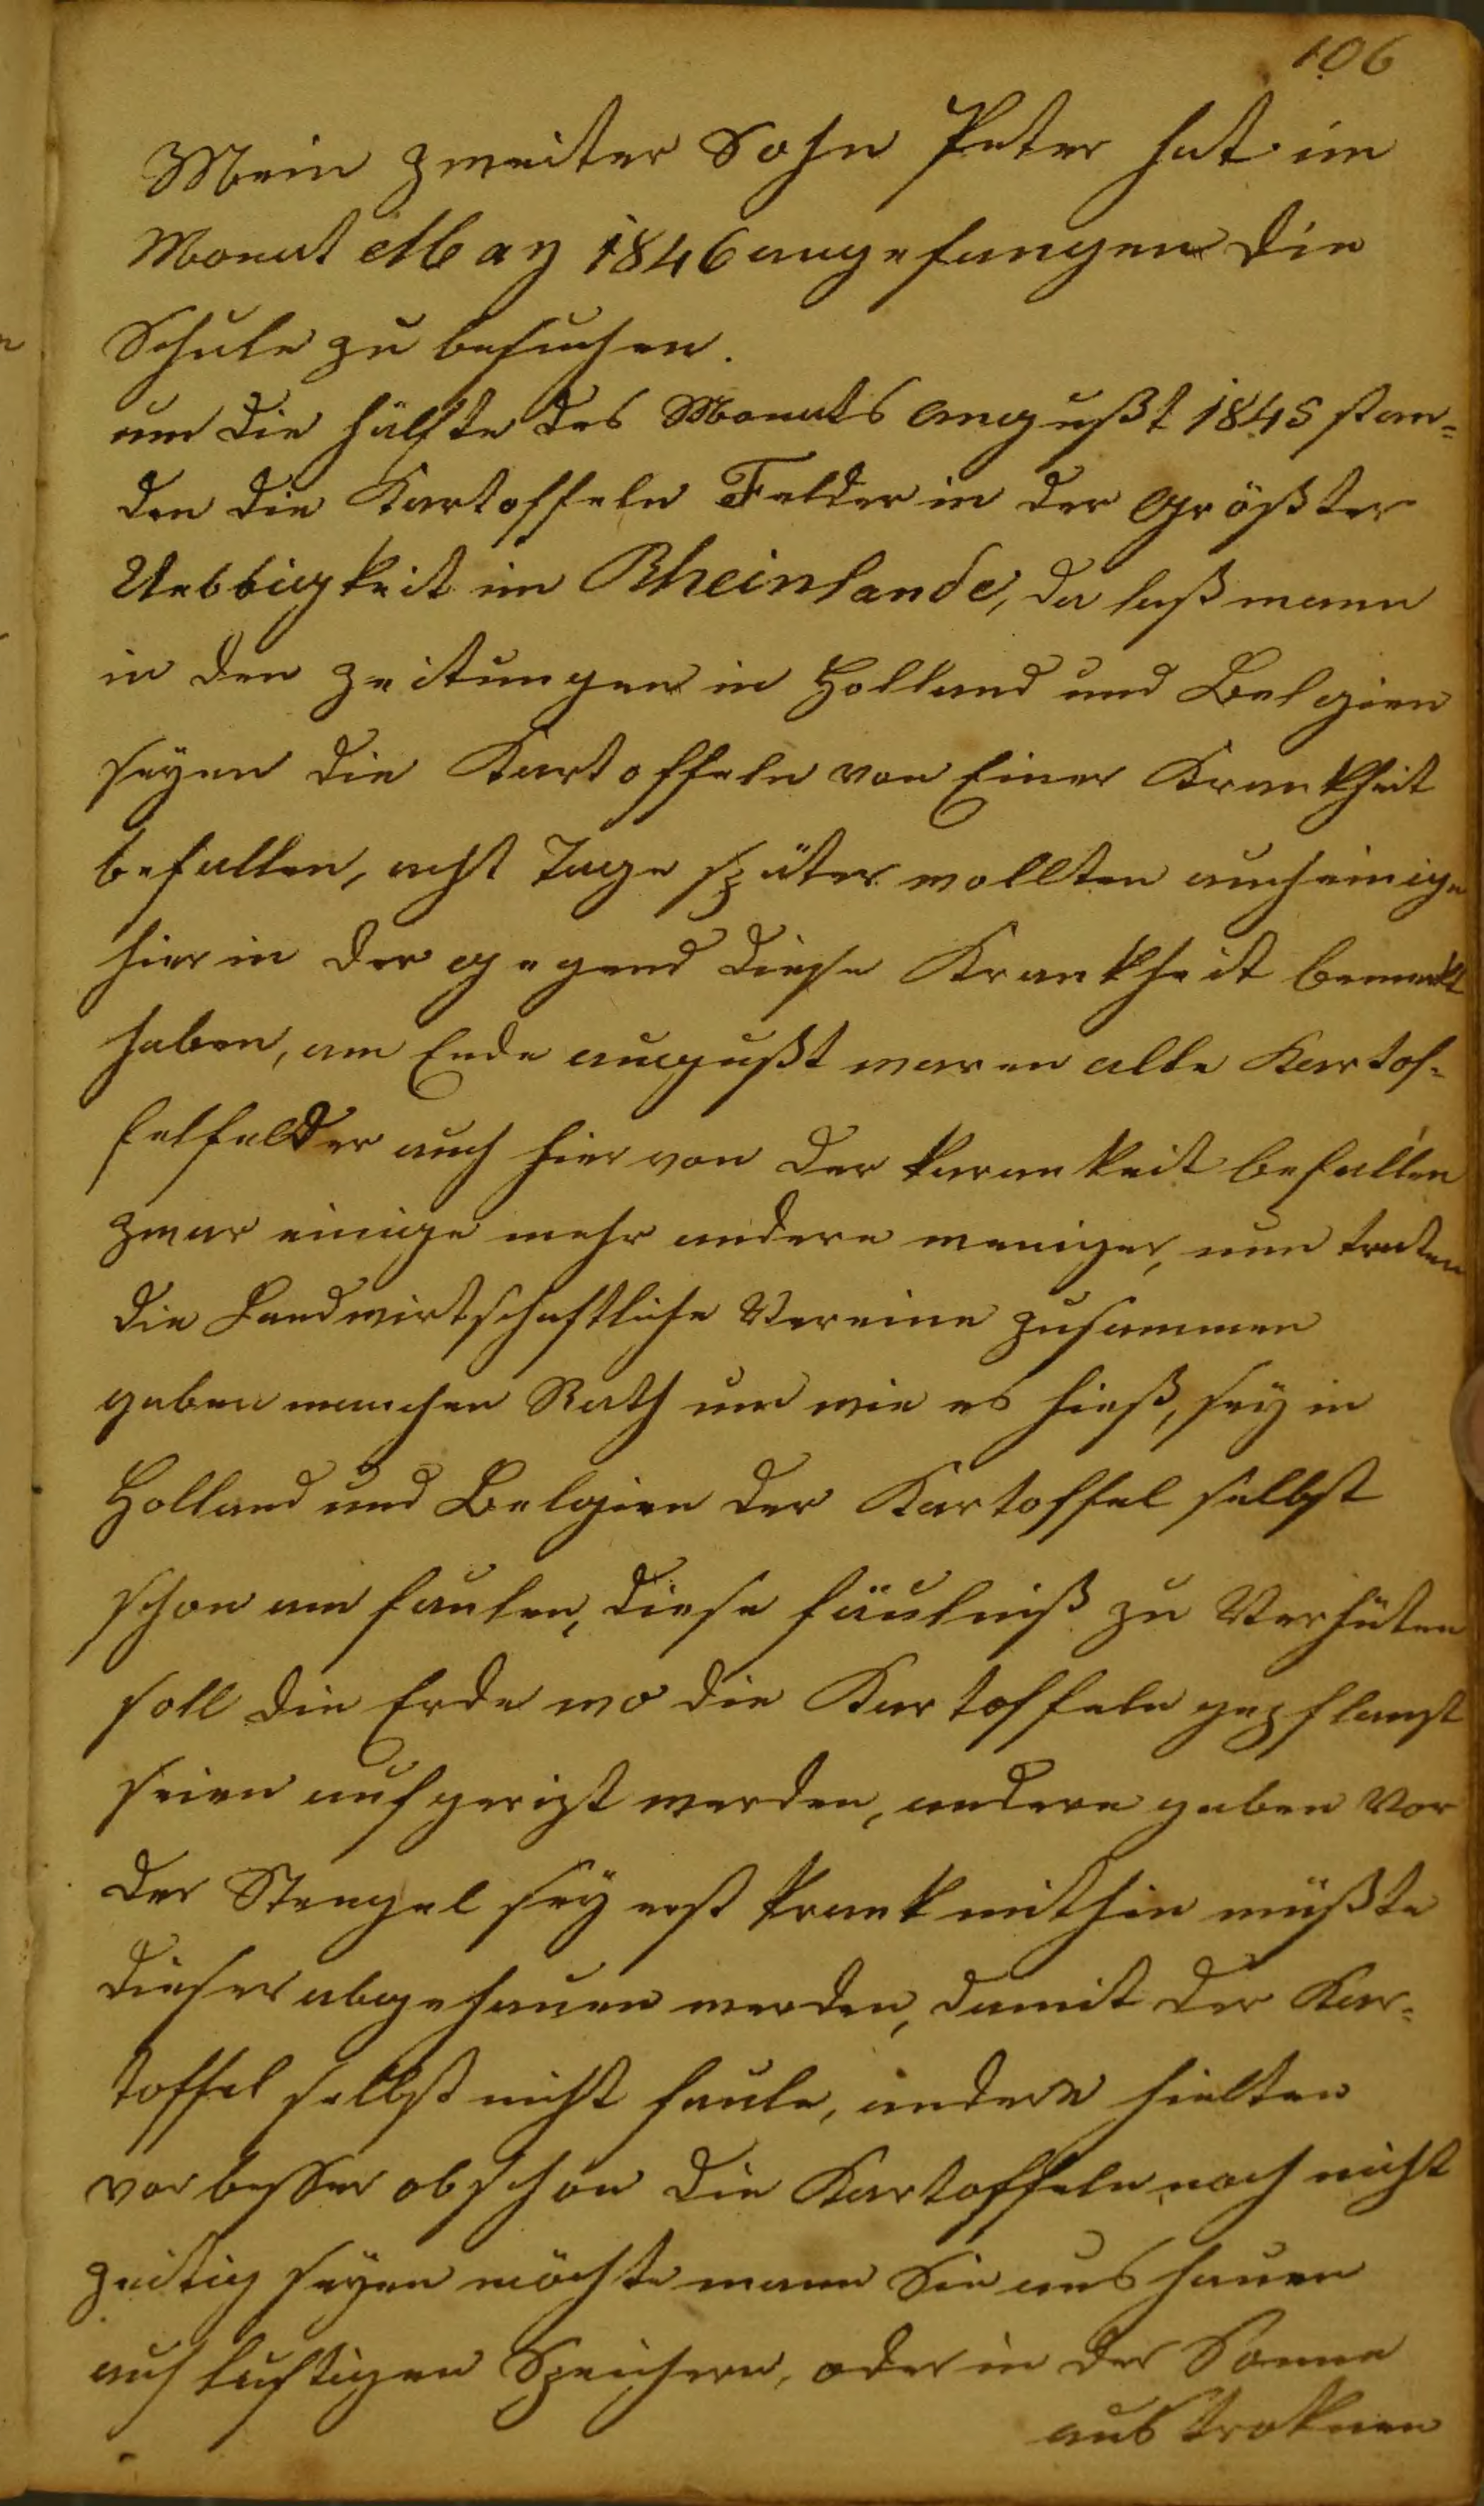 106
Mein zweiter Sohn Peter hat im
Monat May 1846 angefangen die
Schule zu besuchen.
um die hälfte des Monats Augußt 1845 stan=
den die Kartoffeln Felder in der Größter
Uebbigkeit im Rheinlande, da laß mann
in den zeitungen in Holland und Belgien
seyen die Kartoffeln von Einer Krankheit
befallen, acht Tage später wollten auch einige
hier in der gegend diese Krankheit bemerkt
haben, am Ende augußt waren alle Kartof=
felfelder auch hier von der krankeit befallen
zwar einige mehr andere weniger, nun traten
die Landwirtschaftliche Vereine zusammen
gaben manchen Rath um wie es hieß, sey in
Holland und Belgien der Kartoffel selbst
schon am faulen, diese fäulniß zu Verhüten
soll die Erde wo die Kartoffeln gepflanzt
seien aufgerizt werden, andere gaben Vor
der Stengel sey erst krank mithin müßte
dieser abgehauen werden, damit der Kar=
toffel selbst nicht faule, andere hielten
vor besser obschon die Kartoffeln noch nicht
zeitig seyen möchte mann Sie aushauen
auf luftigen Speichern, oder in der Sonne
austroknen